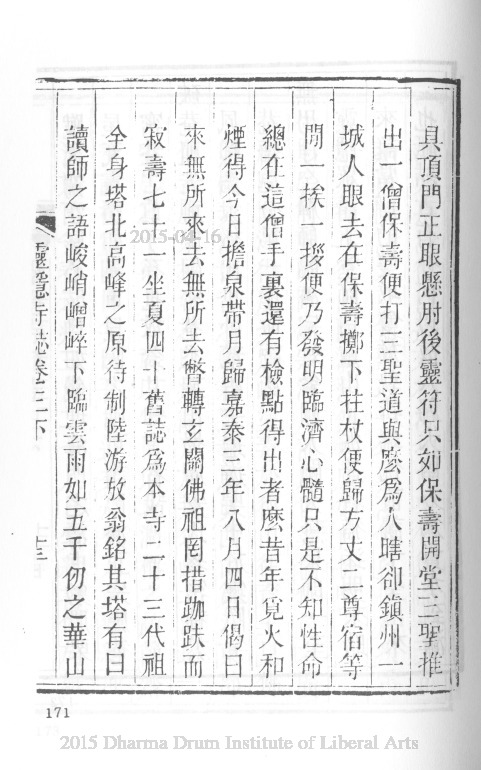 具頂門正眼懸肘後靈符只如保壽開堂三聖推
出一僧保壽便打三聖道與麼爲人瞎卻鎮州一
城人眼去在保壽擲下拄杖便歸方丈二尊宿等
閒一挨一拶便乃發明臨濟心髓只是不知性命
總在這僧手裏還有檢點得出者麼昔年覓火和
煙得今日擔泉帶月歸嘉泰三年八月四日偈曰
來無所來去無所去瞥轉玄關佛祖罔措跏趺而
寂壽七十一坐夏四十舊誌爲本寺二十三代祖
全身塔北高峰之原待制陸游放翁銘其塔有曰
讀師之語峻峭崷崒下臨雲雨如五千仞之華山
靈隱寺誌卷三下
十三
171
2015-04-16
2015 Dharma Drum Institute of Liberal Arts